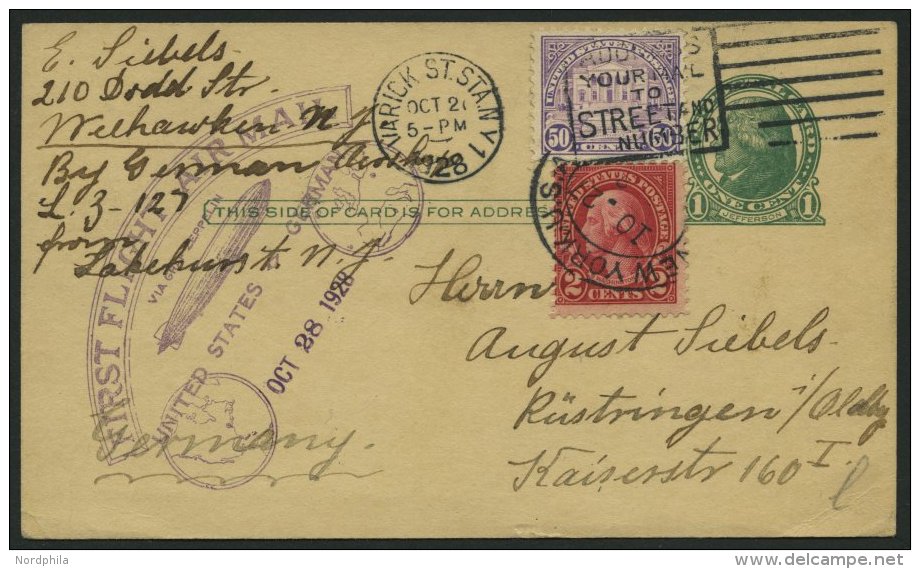 E. Siebels
210 Dodd Str.
Weehawken N.J.
By German Airship
L.Z-127
from
Lakehurst. N.J.
Germany.
FIRST FLIGHT AIR MAIL
VIA GRAF ZEPPELIN
UNITED STATES GERMANY
OCT 28 1928
VARICK ST. STA. N Y
OCT 2
5-PM
1928
1
UNITED STATES POSTAGE
50 50
YOUR MAIL
TO
STREET AND
NUMBER
UNITED STATES POSTAGE
2 CENTS 2
NEW YORK
10
1 ONE CENT 1
JEFFERSON
THIS SIDE OF CARD IS FOR ADDRESS
Herrn
August Siebels.
Rüstringen i/Oldbg
Kaiserstr 160 I.
Nordphila
delcampe.net